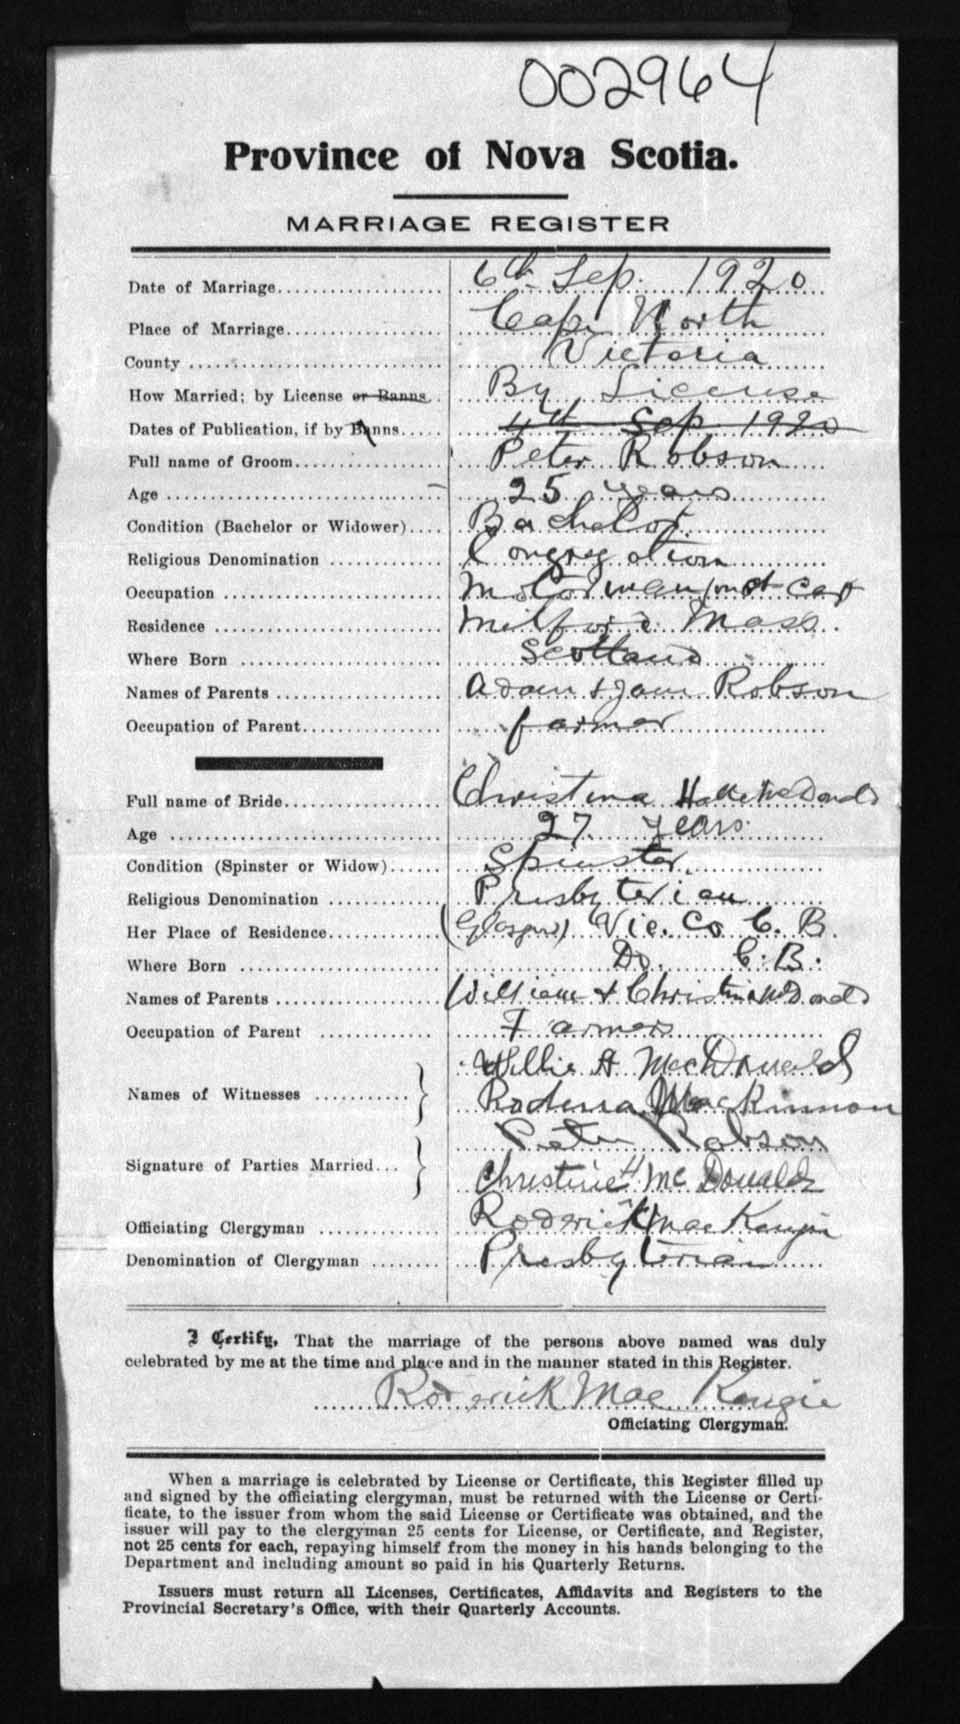 002964
Province of Nova Scotia.
MARRIAGE REGISTER
Date of Marriage 6th Sep. 1920
Place of Marriage Cape North
County Victoria
How Married; by License or Banns By License
Dates of Publication, if by Banns 4th Sep 1920
Full name of Groom Peter Robson
Age 25 years
Condition (Bachelor or Widower) Bachelor
Religious Denomination Congregation
Occupation Motorman
Residence Milford Mass.
Where Born Scotland
Names of Parents Adam & Jane Robson
Occupation of Parent farmer
Full name of Bride Christina McDonald
Age 27 years
Condition (Spinster or Widow) Spinster
Religious Denomination Presbyterian
Her Place of Residence (Glasgow) Vic. Co C. B.
Where Born Do. C. B.
Names of Parents William & Christina McDonald
Occupation of Parent Farmers
Names of Witnesses Willie A MacDonald
Rodena MacKinnon
Signature of Parties Married Peter Robson
Christine H McDonald
Officiating Clergyman Roderick MacKenzie
Denomination of Clergyman Presbyterian
I Certify, That the marriage of the persons above named was duly
celebrated by me at the time and place and in the manner stated in this Register.
Roderick MacKenzie
Officiating Clergyman.
When a marriage is celebrated by License or Certificate, this Register filled up
and signed by the officiating clergyman, must be returned with the License or Certi-
ficate, to the issuer from whom the said License or Certificate was obtained, and the
issuer will pay to the clergyman 25 cents for License, or Certificate, and Register,
not 25 cents for each, repaying himself from the money in his hands belonging to the
Department and including amount so paid in his Quarterly Returns.
Issuers must return all Licenses, Certificates, Affidavits and Registers to the
Provincial Secretary's Office, with their Quarterly Accounts.